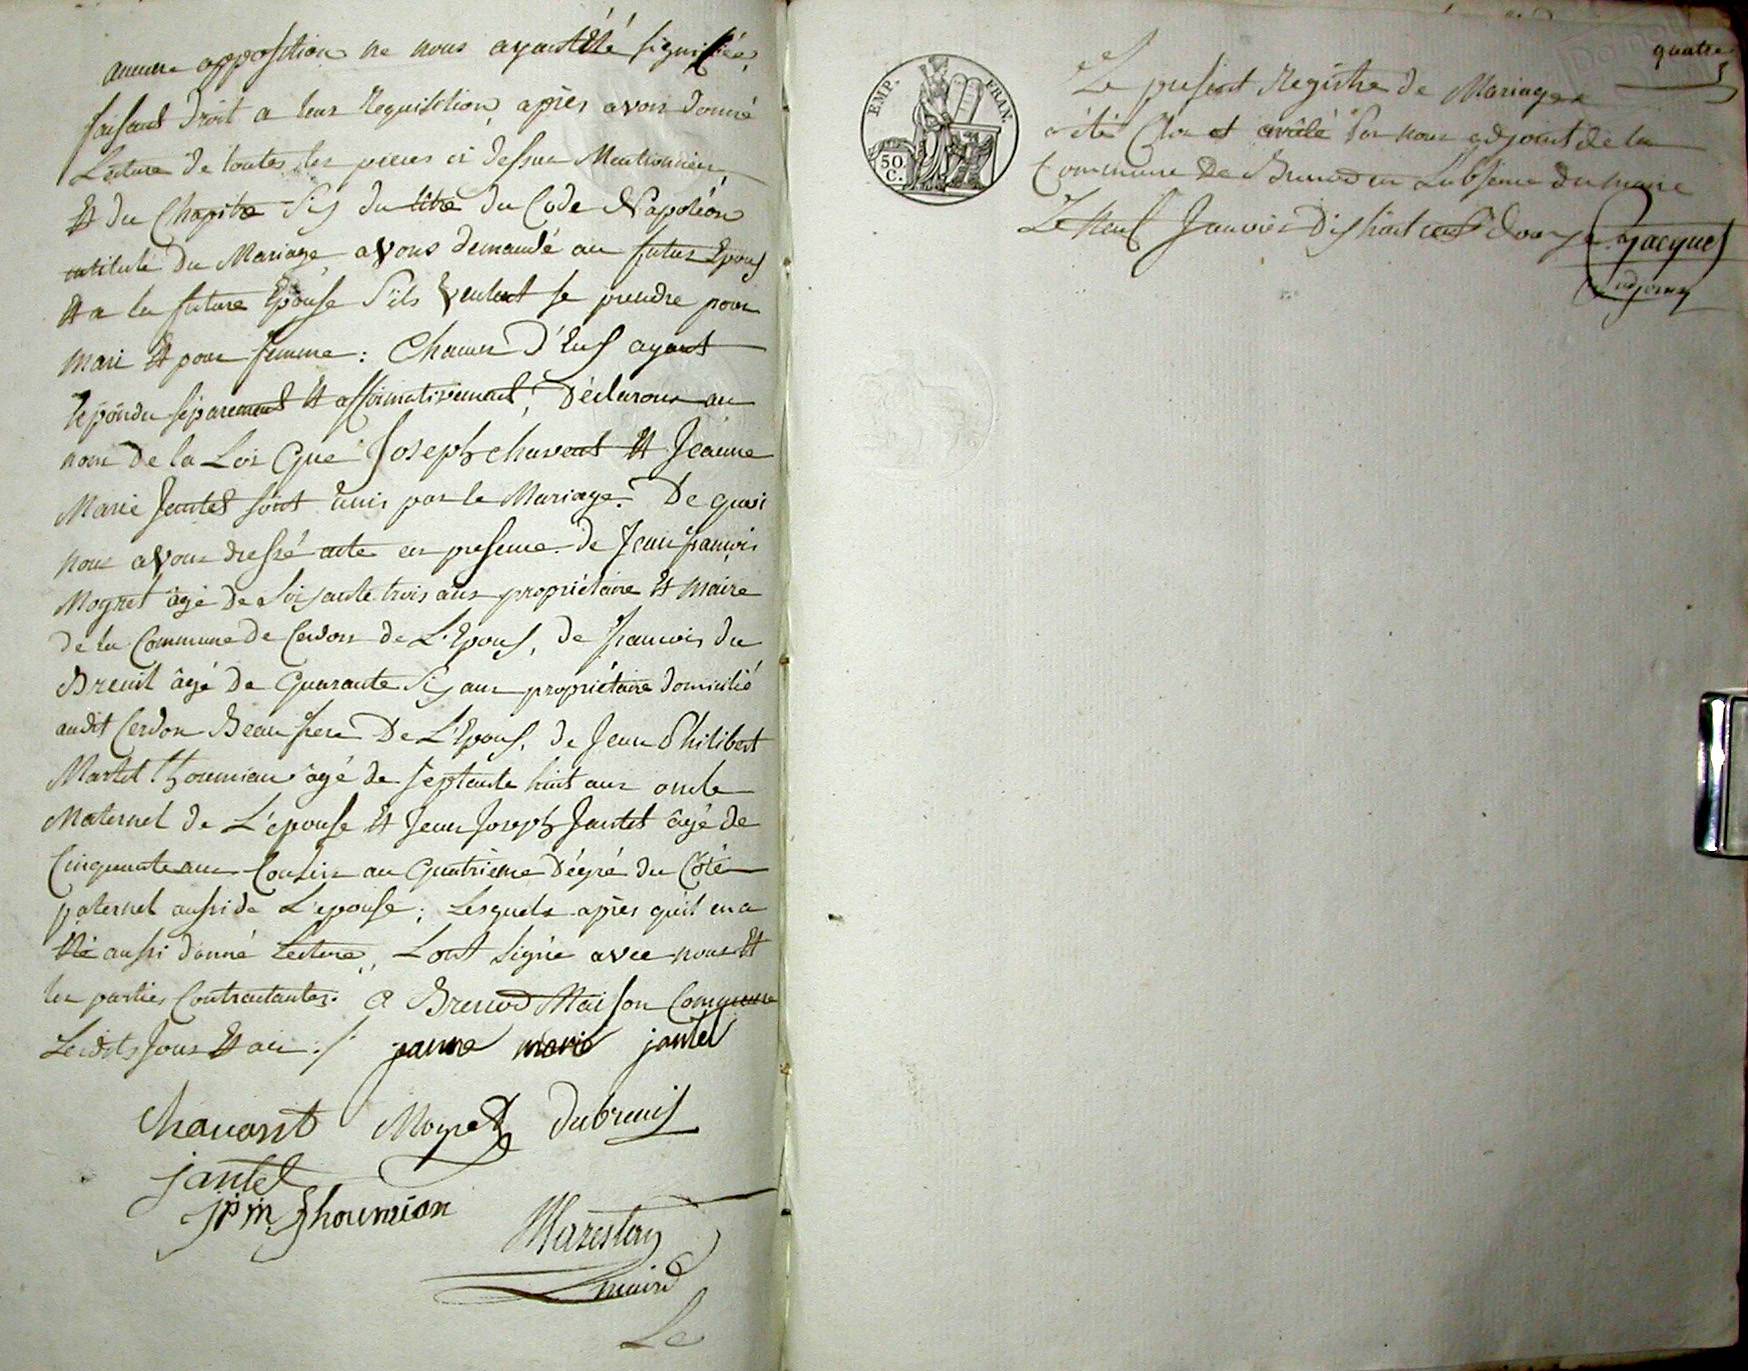 aucune opposition ne nous ayant été signifiée,
faisant droit a leur Requisition, après avoir donné
Lecture de toutes les pieces ci dessus Mentionnées,
Et du Chapitre Six du titre du Code Napoléon
intitulé du Mariage avons demandé au futur Epoux
Et a la future Epouse S'ils veulent se prendre pour
mari Et pour femme : Chacun d'Eux ayant
repondu séparement Et affirmativement, Déclarons au
nom de la Loi Que Joseph chavent Et Jeanne
Marie Jantet sont unis par le Mariage. De quoi
nous avons dressé acte en presence de Jean françois
Moyret âgé de Soixante trois ans propriétaire Et maire
de la Commune de Cerdon de L'Epoux, de francois du
Breuil âgé de Quarante Six ans propriétaire domicilié
audit Cerdon Beau frere De L'Epoux, de Jean Philibert
Martel thoumian âgé de septante huit ans oncle
Maternel de L'épouse Et Jean Joseph Jantet âgé de
Cinquante ans Cousin au Quatrième Dégré du Côté
paternel aussi de L'epouse ; Lesquels après qu'il en a
Eté aussi donné Lecture, L'ont Signé avec nous Et
les parties Contractantes. A Brenod Maison Commune
Lesdits Jour Et an ./. janne marie jantet
Chavant Moyret dubreuil
jantet
jpm thoumian
Marestan
maire
Le
quatre
EMP. FRAN.
50.
C.
Le present Registre de Mariages
a été Clos et arrêté Par nous adjoint de la
Commune de Brenod en L'absence du maire
Le Neuf Janvier Dix huit cent douze Jacquet
adjoint